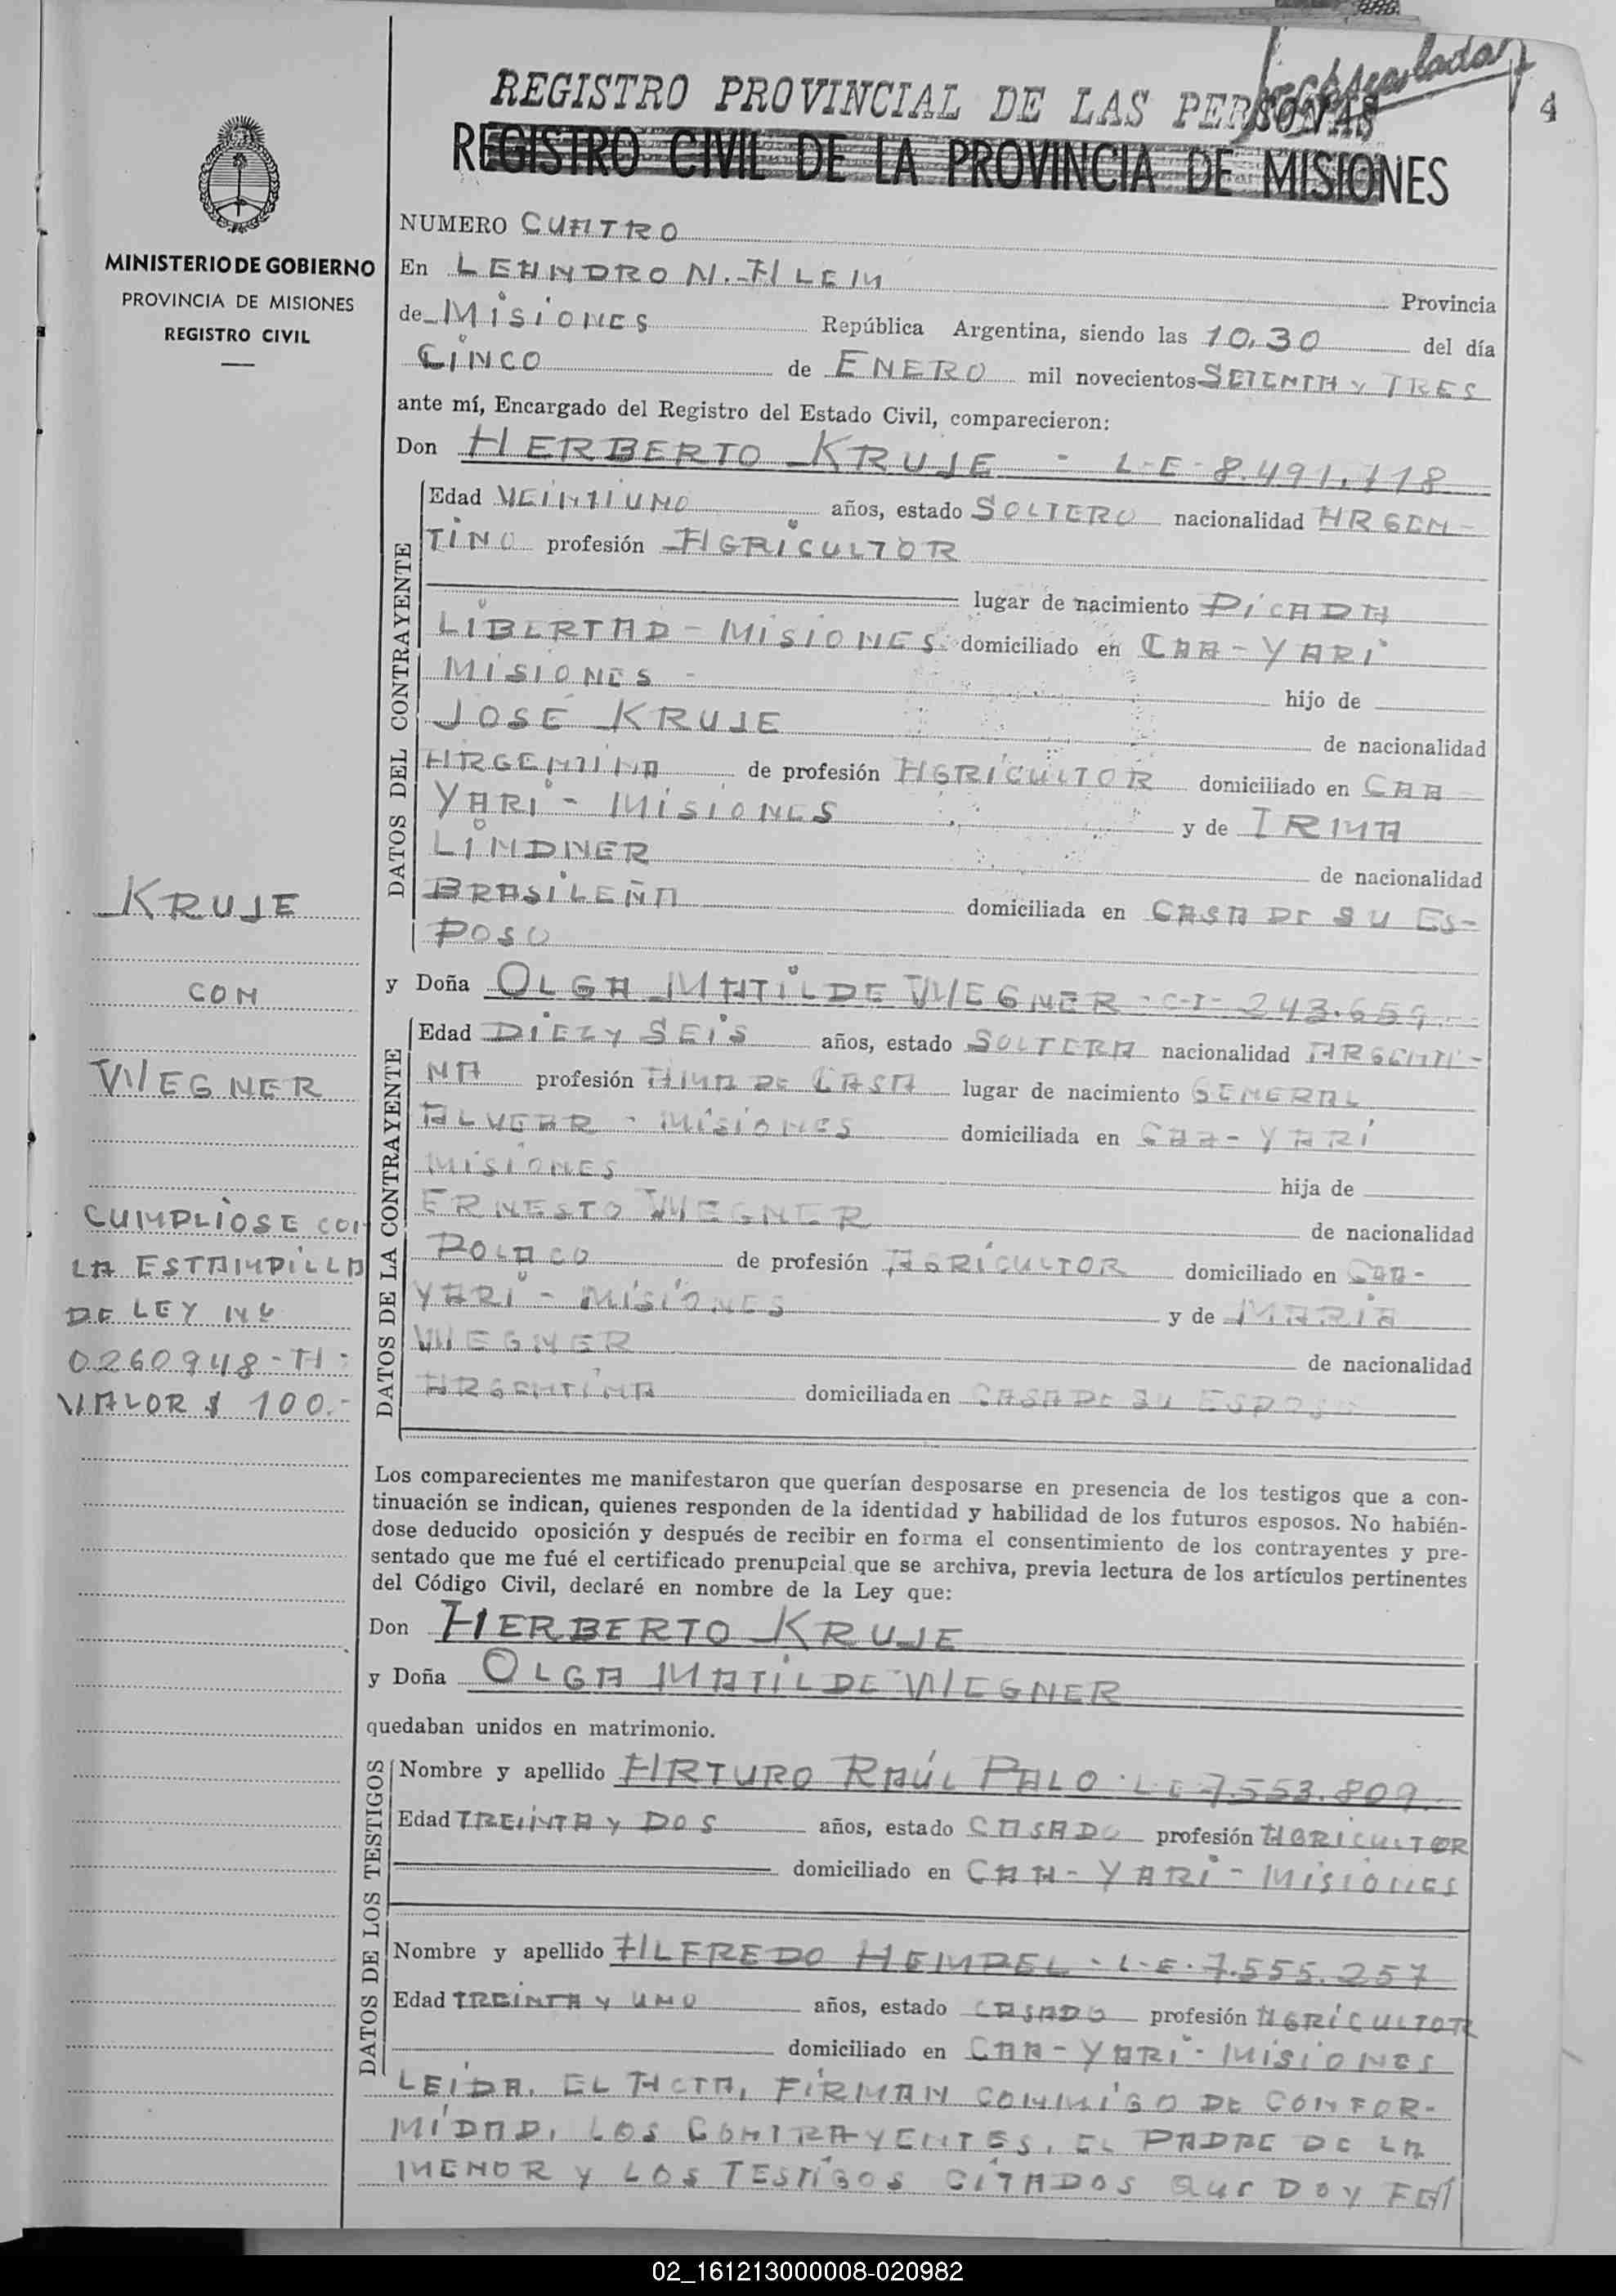 REGISTRO PROVINCIAL DE LAS PERSONAS
4
REGISTRO CIVIL DE LA PROVINCIA DE MISIONES
MINISTERIO DE GOBIERNO
PROVINCIA DE MISIONES
REGISTRO CIVIL
NUMERO CUATRO
En LEANDRO N. ALEM Provincia
de MISIONES República Argentina, siendo las 10,30 del día
CINCO de ENERO mil novecientos SETENTA Y TRES
ante mí, Encargado del Registro del Estado Civil, comparecieron:
Don HERBERTO KRUJE - L-E- 8.491.118
DATOS DEL CONTRAYENTE
Edad VEINTIUNO años, estado SOLTERO nacionalidad ARGEN-
TINO profesión AGRICULTOR
lugar de nacimiento PICADA
LIBERTAD - MISIONES domiciliado en CAA-YARI
MISIONES - hijo de
JOSE KRUJE de nacionalidad
ARGENTINA de profesión AGRICULTOR domiciliado en CAA
YARI - MISIONES y de IRMA
LINDNER de nacionalidad
BRASILEÑA domiciliada en CASA DE SU ES-
POSO
y Doña OLGA MATILDE WEGNER - C-I- 243.659
DATOS DE LA CONTRAYENTE
Edad DIEZ Y SEIS años, estado SOLTERA nacionalidad ARGENTI-
NA profesión AMA DE CASA lugar de nacimiento GENERAL
ALVEAR - MISIONES domiciliada en CAA-YARI
MISIONES hija de
ERNESTO WEGNER de nacionalidad
POLACO de profesión AGRICULTOR domiciliado en CAA-
YARI - MISIONES y de MARIA
WEGNER de nacionalidad
ARGENTINA domiciliada en CASA DE SU ESPOSO
KRUJE
CON
WEGNER
CUMPLIOSE CON
LA ESTAMPILLA
DE LEY Nº
0260948-A-
VALOR $ 100.-
Los comparecientes me manifestaron que querían desposarse en presencia de los testigos que a con-
tinuación se indican, quienes responden de la identidad y habilidad de los futuros esposos. No habién-
dose deducido oposición y después de recibir en forma el consentimiento de los contrayentes y pre-
sentado que me fué el certificado prenupcial que se archiva, previa lectura de los artículos pertinentes
del Código Civil, declaré en nombre de la Ley que:
Don HERBERTO KRUJE
y Doña OLGA MATILDE WEGNER
quedaban unidos en matrimonio.
DATOS DE LOS TESTIGOS
Nombre y apellido ARTURO RAÚL PALO - L-E 7.553.809
Edad TREINTA Y DOS años, estado CASADO profesión AGRICULTOR
domiciliado en CAA-YARI - MISIONES
Nombre y apellido ALFREDO HEMPEL - L-E- 7.555.257
Edad TREINTA Y UNO años, estado CASADO profesión AGRICULTOR
domiciliado en CAA-YARI - MISIONES
LEIDA, EL ACTA, FIRMAN CONMIGO DE CONFOR-
MIDAD, LOS CONTRAYENTES, EL PADRE DE LA
MENOR Y LOS TESTIGOS CITADOS QUE DOY FE
02_161213000008-020982